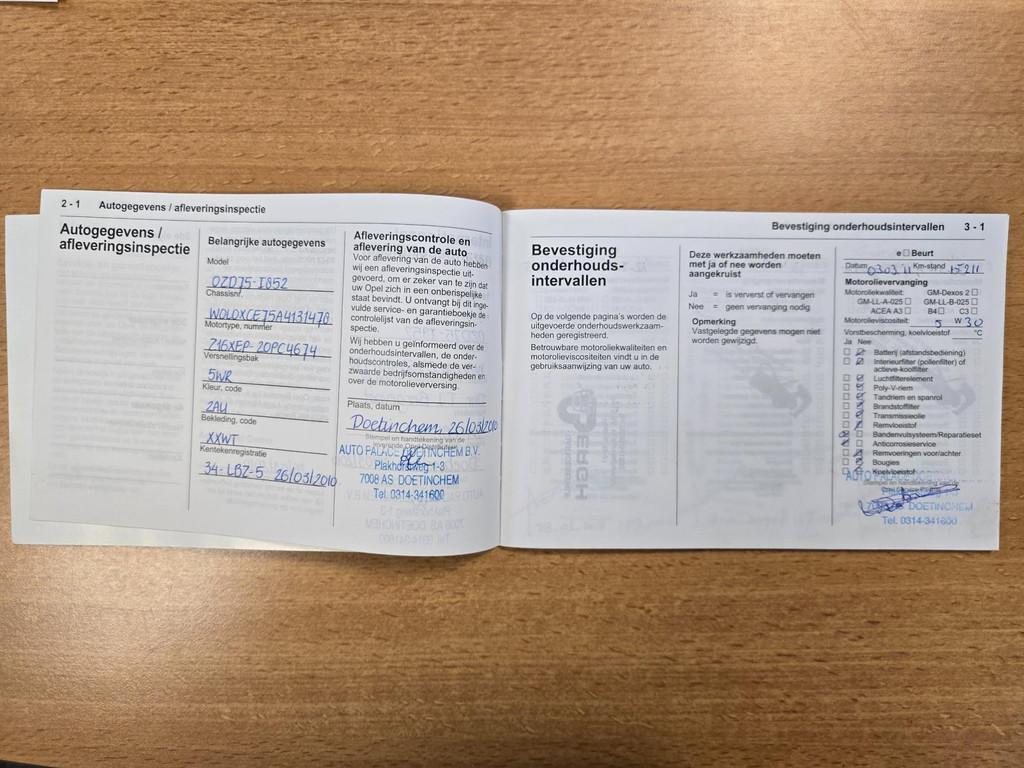 2 - 1 Autogegevens / afleveringsinspectie
Autogegevens /
afleveringsinspectie
Belangrijke autogegevens
Model
OZD75-I852
Chassisnr.
WOLOXCE75A4131478
Motortype, nummer
Z16XEP-20PC4674
Versnellingsbak
5WR
Kleur, code
2AU
Bekleding, code
XXWT
Kentekenregistratie
34-LBZ-5 26/03/2010
Afleveringscontrole en
aflevering van de auto
Voor aflevering van de auto hebben
wij een afleveringsinspectie uit-
gevoerd, om er zeker van te zijn dat
uw Opel zich in een onberispelijke
staat bevindt. U ontvangt bij dit inge-
vulde service- en garantieboekje de
controlelijst van de afleveringsin-
spectie.
Wij hebben u geïnformeerd over de
onderhoudsintervallen, de onder-
houdscontroles, alsmede de ver-
zwaarde bedrijfsomstandigheden en
over de motorolieverversing.
Plaats, datum
Doetinchem 26/03/2010
Stempel en handtekening van de
AUTO PALACE DOETINCHEM B.V.
Plakhorstweg 1-3
7008 AS DOETINCHEM
Tel. 0314-341600
Bevestiging onderhoudsintervallen 3 - 1
Bevestiging
onderhouds-
intervallen
Op de volgende pagina's worden de
uitgevoerde onderhoudswerkzaam-
heden geregistreerd.
Betrouwbare motoroliekwaliteiten en
motorolieviscositeiten vindt u in de
gebruiksaanwijzing van uw auto.
Deze werkzaamheden moeten
met ja of nee worden
aangekruist
Ja = is ververst of vervangen
Nee = geen vervanging nodig
Opmerking
Vastgelegde gegevens mogen niet
worden gewijzigd.
e Beurt
Datum 03.03 '11 Km-stand 15211
Motorolievervanging
Motoroliekwaliteit: GM-Dexos 2
GM-LL-A-025 GM-LL-B-025
ACEA A3 B4 C3
Motorolieviscositeit: 5 W 30
Vorstbescherming, koelvloeistof °C
Ja Nee
Batterij (afstandsbediening)
Interieurfilter (pollenfilter) of
actieve-koolfilter
Luchtfilterelement
Poly-V-riem
Tandriem en spanrol
Brandstoffilter
Transmissieolie
Remvloeistof
Bandenvulsysteem/Reparatieset
Anticorrosieservice
Remvoeringen voor/achter
Bougies
Koelvloeistof
DOETINCHEM
Tel. 0314-341600